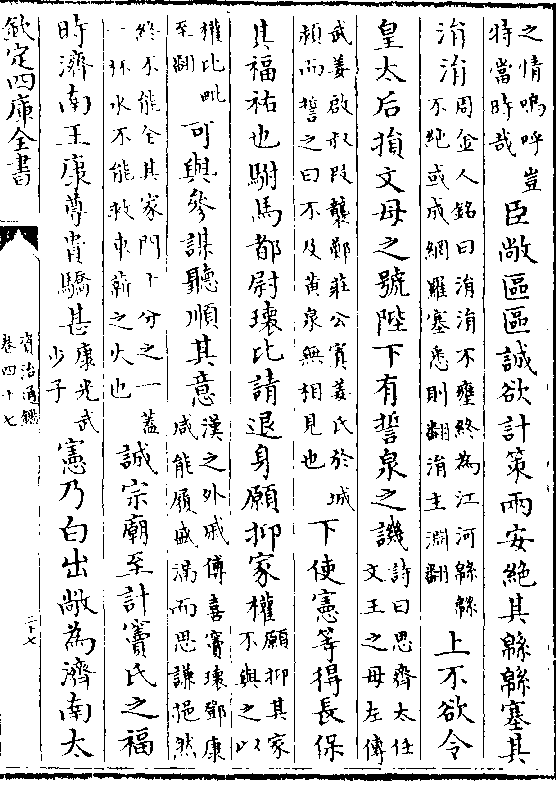 之情嗚呼豈
特當時哉
臣敞區區誠欲計策兩安絶其緜緜塞其
涓涓
周金人銘曰涓涓不壅終為江河緜緜
不絶或成網羅塞悉則翻涓圭淵翻
上不欲令
皇太后損文母之號陛下有誓泉之譏
詩曰思齊太任
文王之母左傳
武姜啟叔段襲鄭莊公寘姜氏於城
潁而誓之曰不及黄泉無相見也
下使憲等得長保
其福祐也駙馬都尉瓌比請退身願抑家權
願抑其家
不與之以
權比毗
至翻
可與參謀聽順其意
漢之外戚傅喜竇瓌鄧康
咸能履盛滿而思謙挹然
終不能全其家門十分之一蓋
一杯水不能救車薪之火也
誠宗廟至計竇氏之福
時濟南王康尊貴驕甚
康光武
少子
憲乃白出敞為濟南太
欽定四庫全書
資治通鑑
卷四十七
二十七